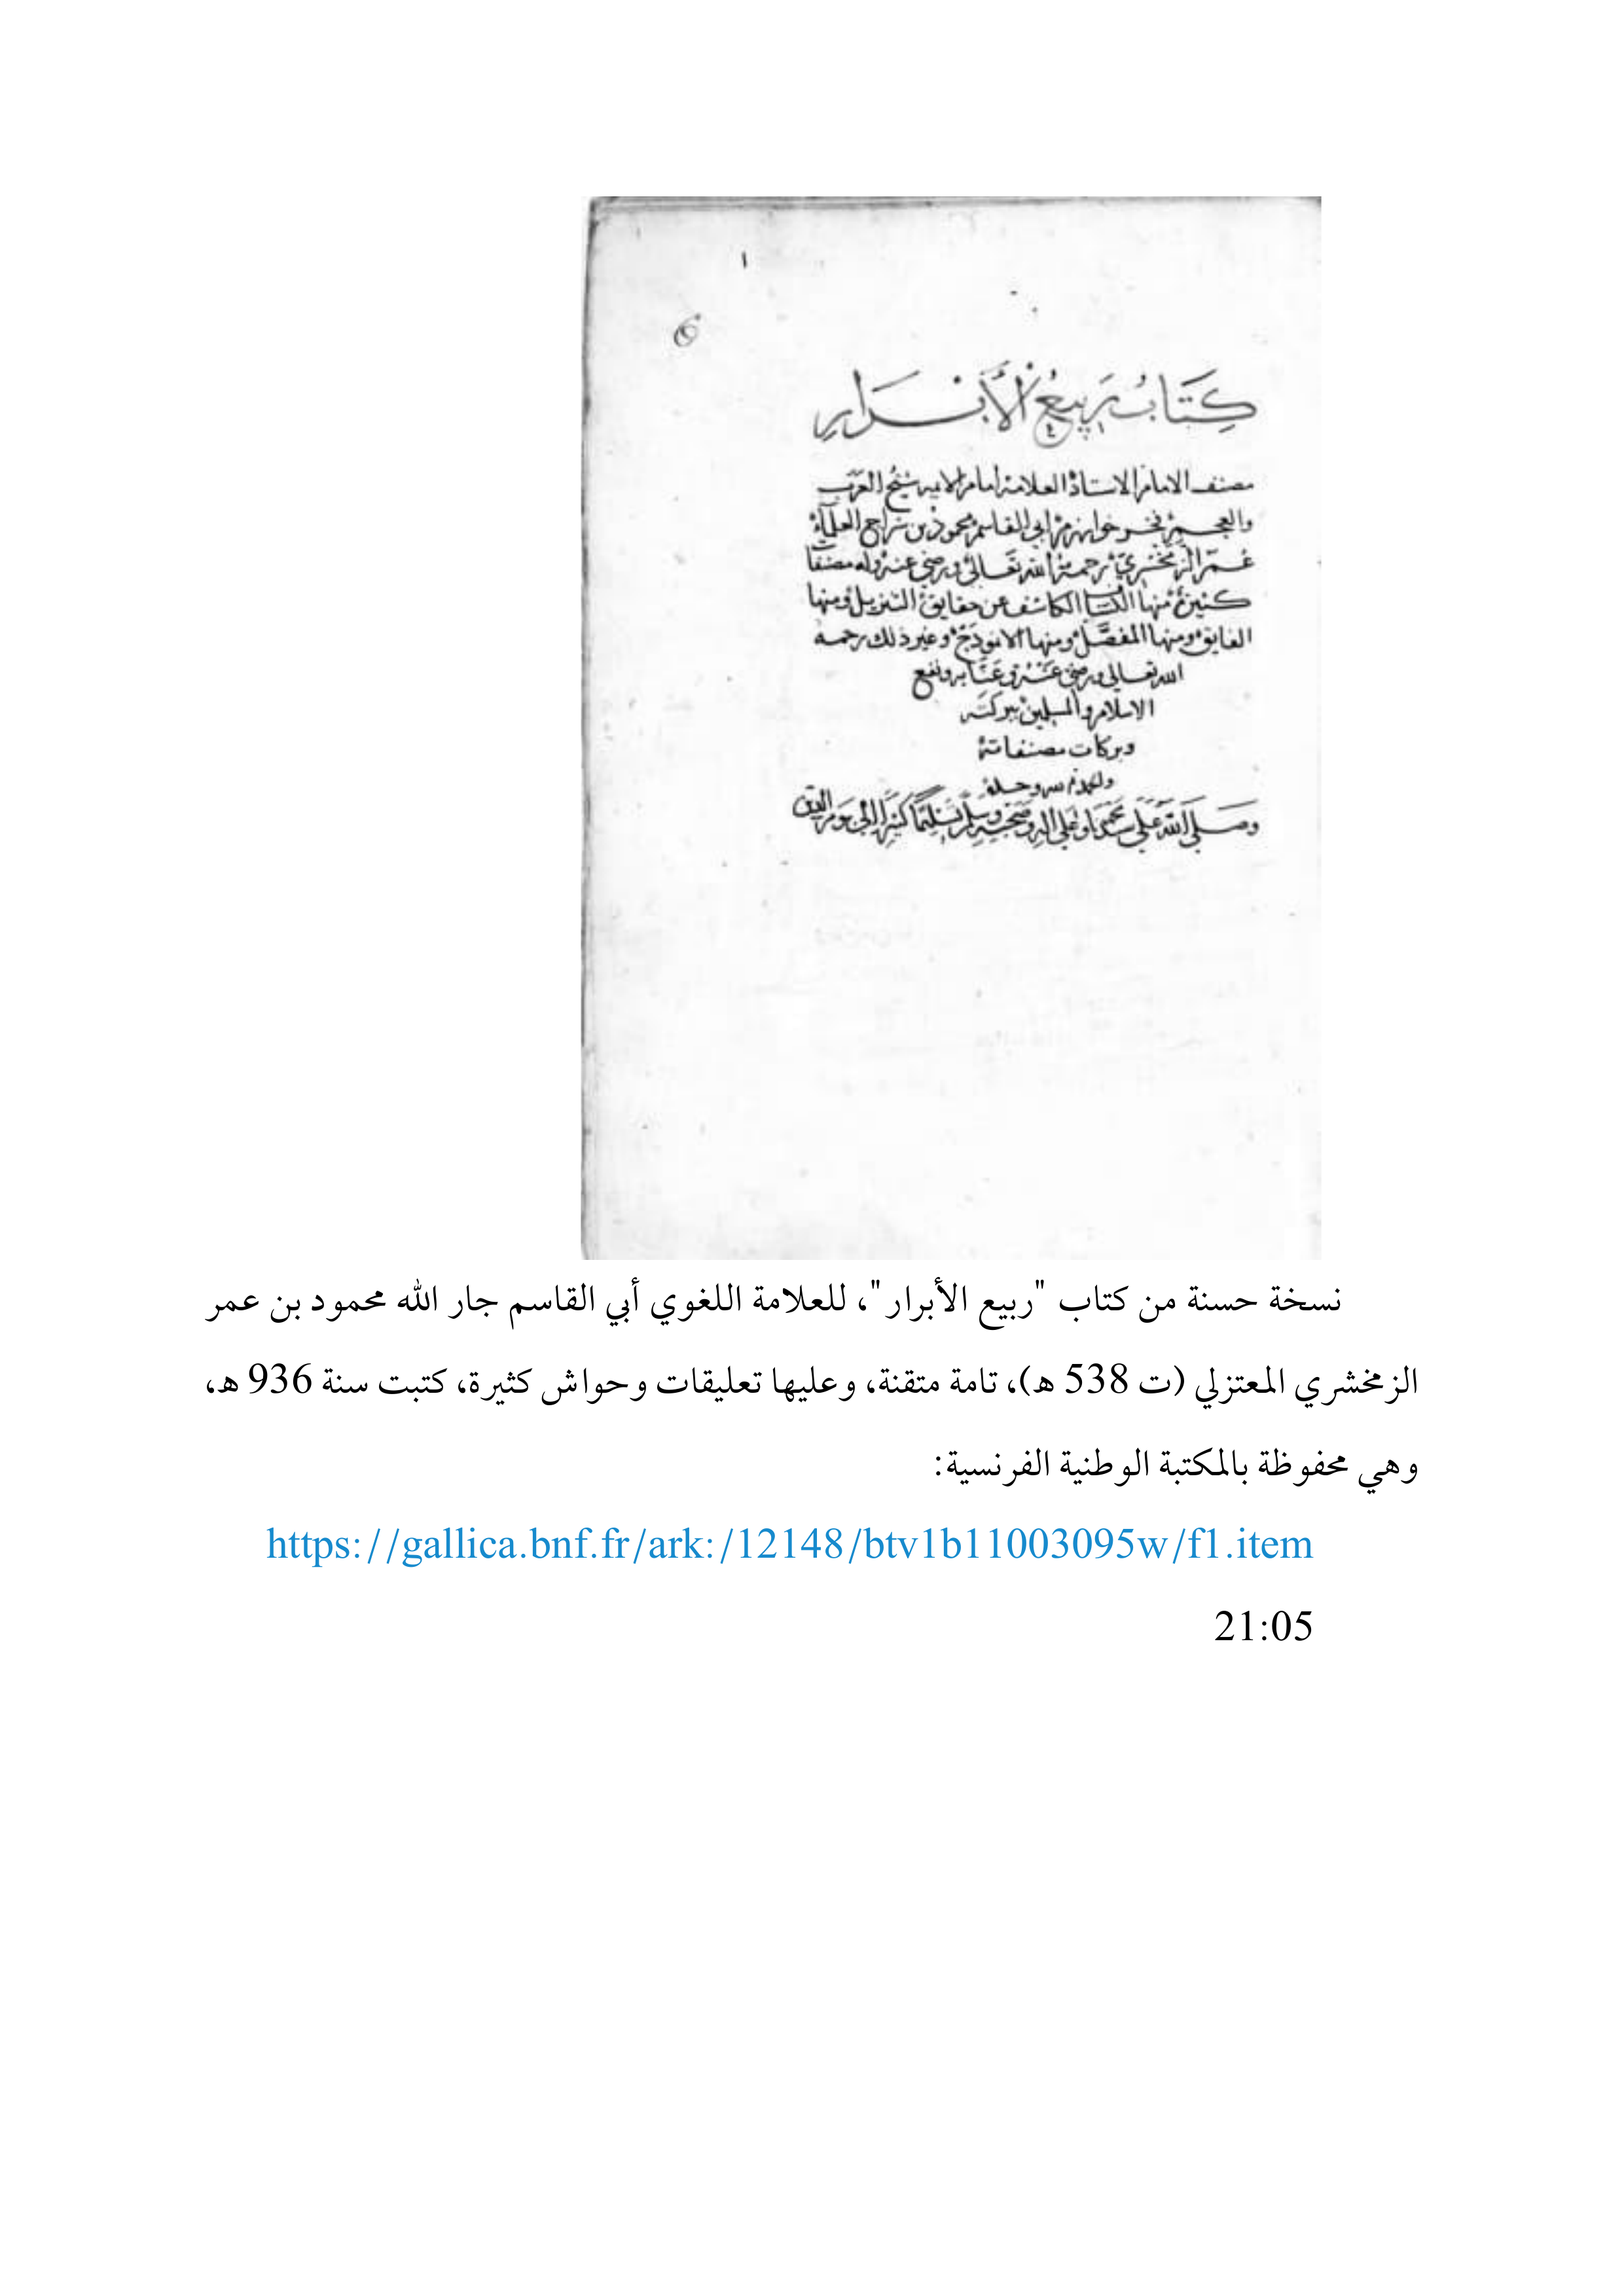 ١
كِتَابُ رَبِيعُ الْأَبْرَارِ
مصنف الامام الاستاذ العلامة امام الايمه شيخ العرب
والعجم فخر خوارزم ابي القاسم محمود بن سراج العلماء
عمر الزمخشري رحمة الله تعالى ورضي عنه وله مصنفات
كثيرة منها الكشاف الكاشف عن حقايق التنزيل ومنها
الفايق ومنها المفصل ومنها الانموذج وغير ذلك رحمه
الله تعالى ورضي عنه وعنا به ونفع
الاسلام والمسلمين ببركته
وبركات مصنفاته
والحمد لله وحده
وصلى الله على سيدنا محمد وعلى اله وصحبه وسلم تسليما كثيرا الى يوم الدين
نسخة حسنة من كتاب "ربيع الأبرار"، للعلامة اللغوي أبي القاسم جار الله محمود بن عمر
الزمخشري المعتزلي (ت 538 هـ)، تامة متقنة، وعليها تعليقات وحواش كثيرة، كتبت سنة 936 هـ،
وهي محفوظة بالمكتبة الوطنية الفرنسية:
https://gallica.bnf.fr/ark:/12148/btv1b11003095w/f1.item
21:05